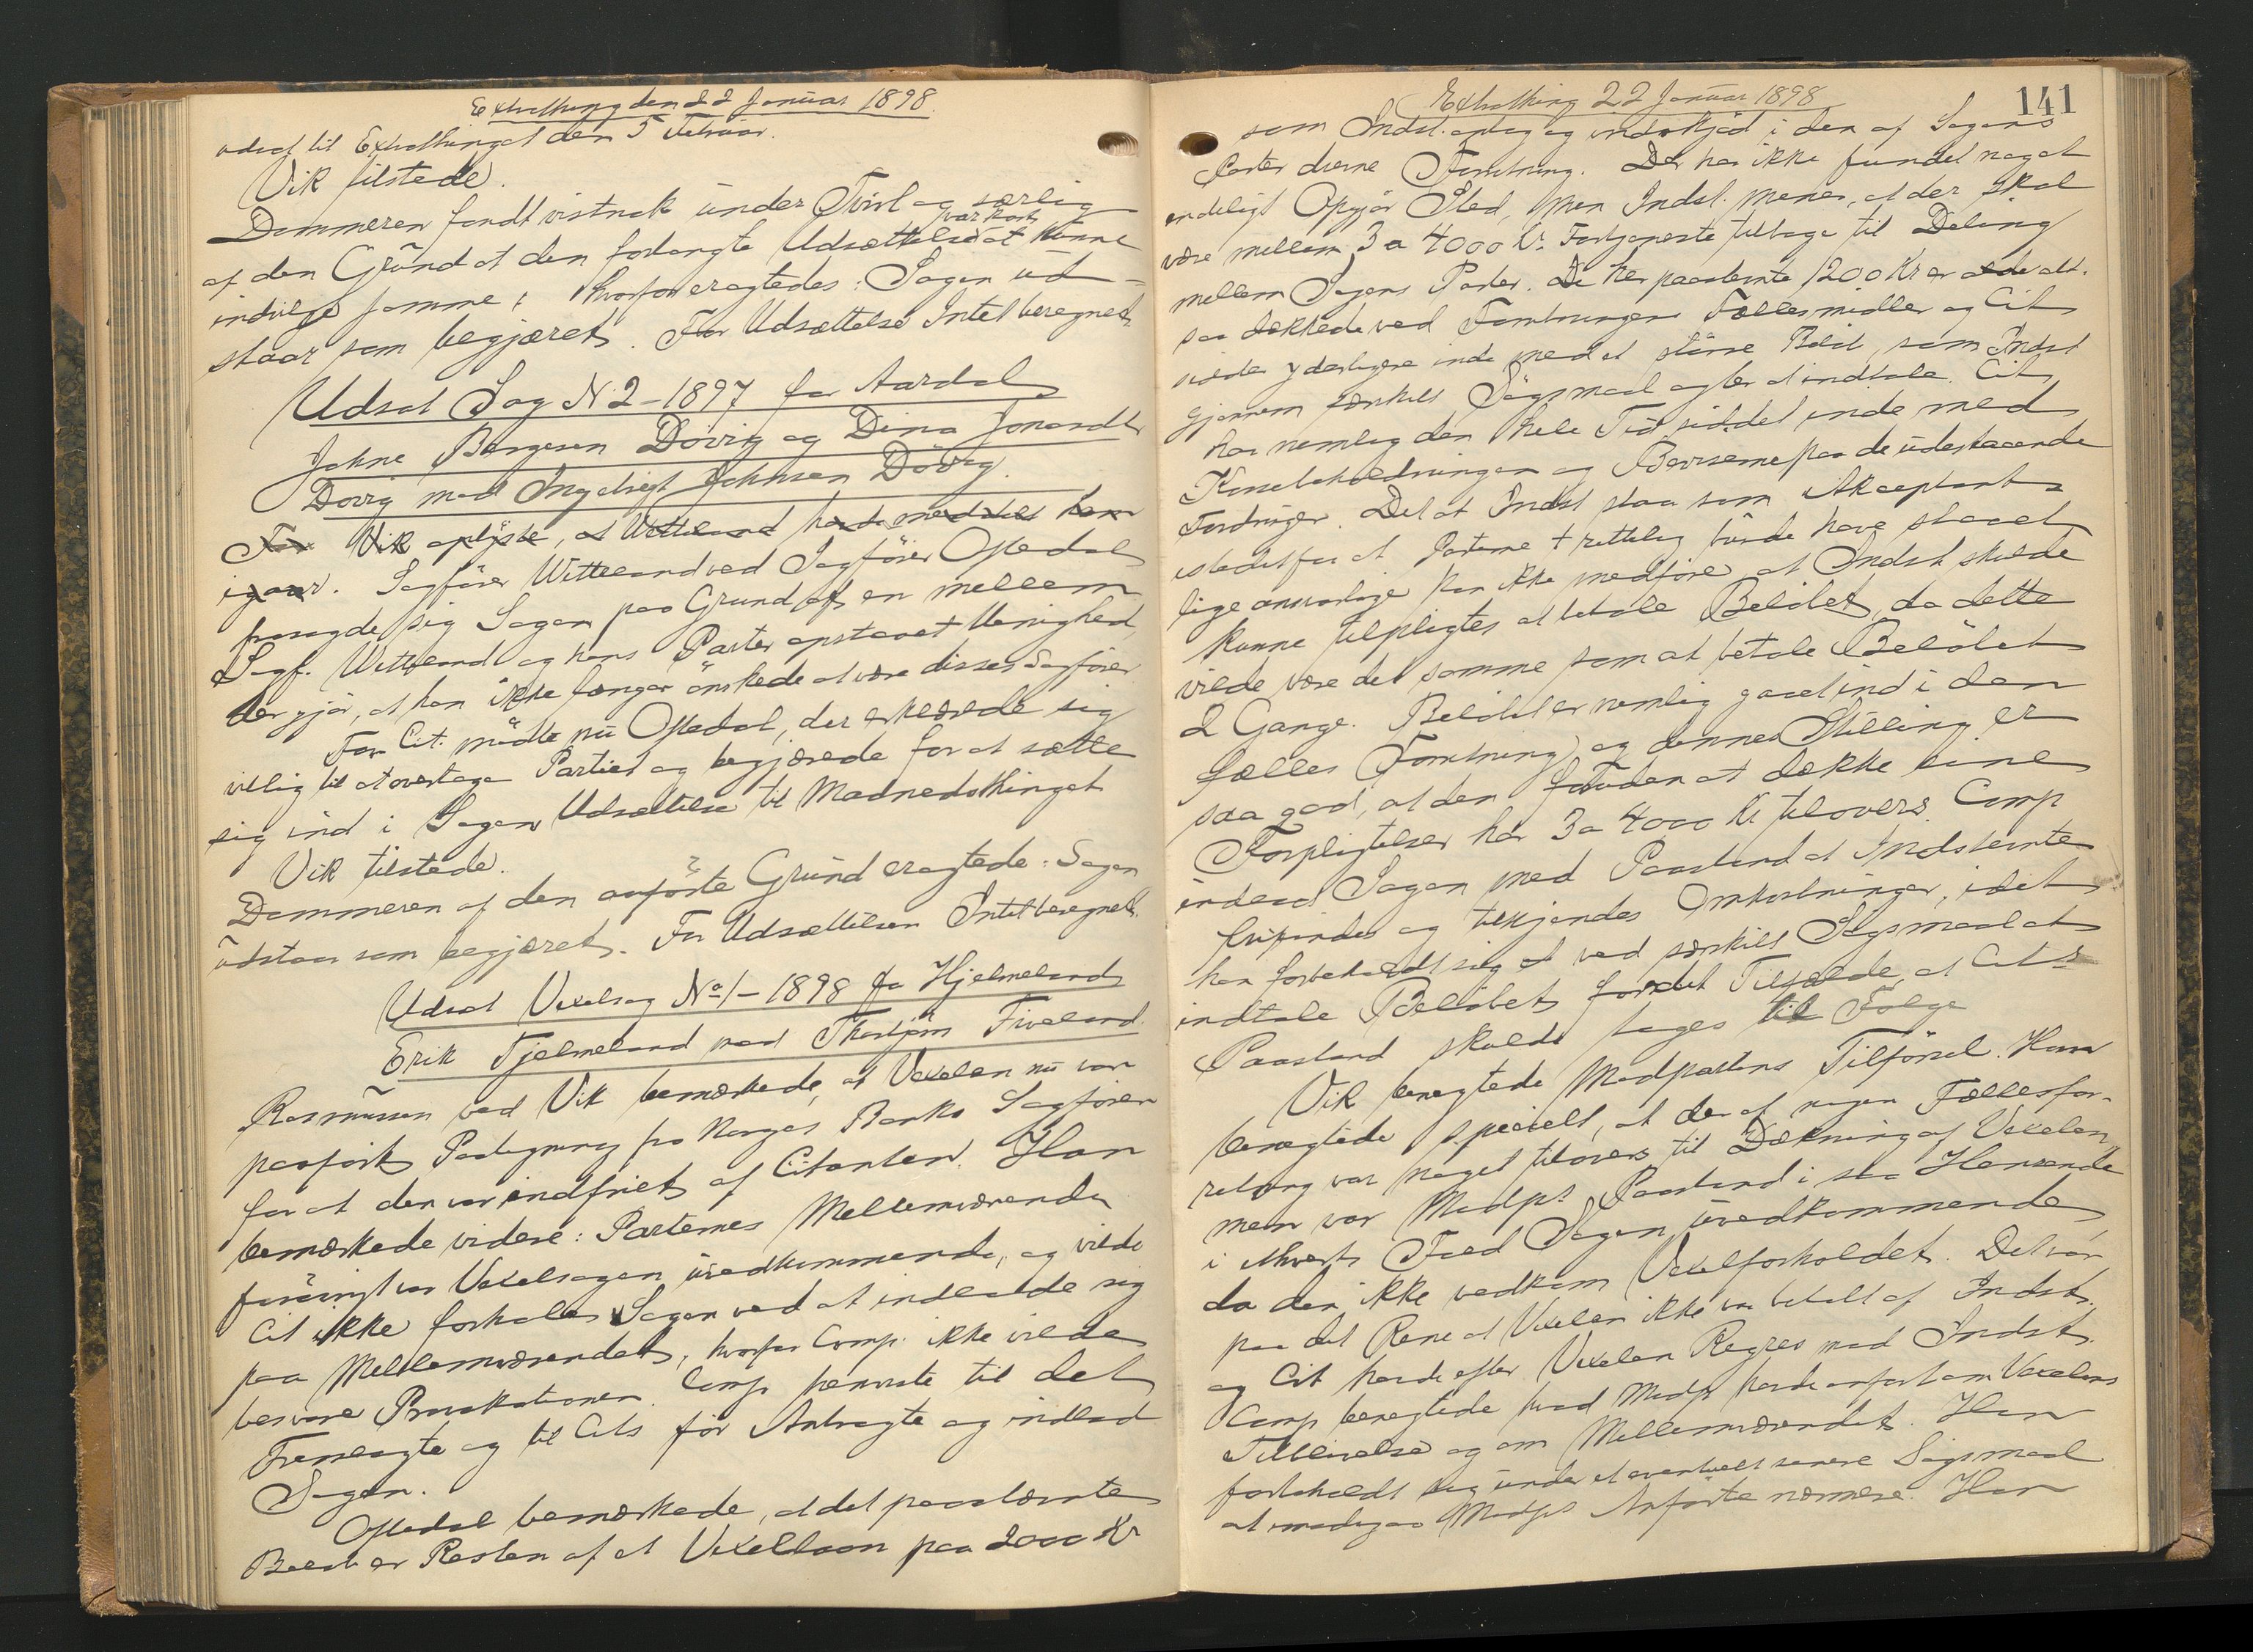 Extrathing den 22 Januar 1898.
udsat til Extrathinget den 5 Februar.
Vik tilstede.
Dommeren fandt vistnok under Tvivl og særlig
af den Grund at den forlangte Udsættelse var kort at kunne
indvilge samme, hvorfor eragtedes: Sagen ud-
staar som begjæret. For Udsættelse Intet beregnet.
Udsat Sag N 2 - 1897 fra Aardal
Johne Børgesen Døvig og Dina Jonasdtr
Døvig mod Ingebrigt Johnsen Døvig.
For Vik oplyste, at Wetteland havde meddelt ham
igaar. Sagfører Wetteland ved Sagfører Oftedal
frasagde sig Sagen paa Grund af en mellem
Sagf. Wetteland og hans Parter opstaaet Uenighed,
der gjør, at han ikke længer ønskede at være disses Sagfører
For Cit. mødte nu Oftedal, der erklærede sig
villig til at overtage Partiet og begjærede for at sætte
sig ind i Sagen Udsættelse til Maanedsthinget
Vik tilstede.
Dommeren af den anførte Grund eragtede: Sagen
udstaar som begjæret. For Udsættelsen Intet beregnet.
Udsat Vexelsag No 1 - 1898 fra Hjelmeland
Erik Tjelmeland mod Thorbjørn Fiveland.
Rasmussen ved Vik bemærkede, at Vexelen nu var
paaført Paategning fra Norges Banks Sagfører
for at den var indfriet af Citanten. Han
bemærkede videre: Parternes Mellemværende
forøvrigt var Vexelsagen uvedkommende, og vilde
Cit ikke forhale Sagen ved at indlade sig
paa Mellemværendet, hvorfor Comp. ikke vilde
besvare Provokationen. Comp henviste til det
Fremlagte og til Cits før Anbragte og indlod
Sagen.
Oftedal bemærkede, at det paastævnte
Beløb er Resten af et Vexellaan paa 2000 Kr
141
Extrathing 22 Januar 1898
som Indst. optog og indskjød i den af Sagens
Parter drevne Forretning. Der har ikke fundet noget
endeligt Opgjør Sted, men Indst. mener, at der skal
være mellem 3 a 4000 Kr Fortjeneste tilbage til Deling
mellem Sagens Parter. De her paastevnte 1200 Kr er alde alt-
saa dækkede ved Forretningens Fællesmidler og Cit
sidder yderligere inde med et større Beløb, som Indst
gjennem særskilt Søgsmaal agter at indtale. Cit
har nemlig den hele Tid siddet inde med
Kassebeholdningen og Beviserne paa de udestaaende
Fordringer. Det at Indst staar som Akceptant
istedetfor at Parterne rettelig burde have staaet
lige ansvarlige kan ikke medføre, at Indst skulde
kunne tilpligtes at betale Beløbet, da dette
vilde være det samme som at betale Beløbet
2 Gange. Beløbet er nemlig gaaet ind i den
fælles Forretning, og dennes Stilling er
saa god, at den foruden at dække sine
Forpligtelser har 3 a 4000 Kr tilovers. Comp
indlod Sagen med Paastand at Indstevnte
frifindes og tilkjendes Omkostninger, idet
han forbeholdt sig at ved særskilt Søgsmaal at
indtale Beløbet for det Tilfælde, at Cits
Paastand skulde tages til Følge
Vik benegtede Modpartens Tilførsel. Han
benegtede specielt, at der af nogen Fællesfor-
retning var noget tilovers til Dækning af Vexelen,
men var Modps Paastand i saa Henseende
i ethvert Fald Sagen uvedkommende
da den ikke vedkom Vexelforholdet. Det var
paa det Rene at Vexelen ikke var betalt af Indst.
og Cit havde efter Vexelen Regres mod Indst.
Comp benegtede hvad Modp havde anført om Vexelens
Tilblivelse og om Mellemværendet. Han
forbeholdt sig under et eventuelt senere Søgsmaal
at imødegaa Modps Anførte nærmere. Han